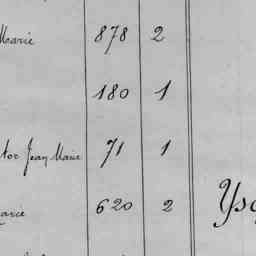 Marie 878 2
180 1
tor Jean Marie 71 1
Marie 620 2
Ys